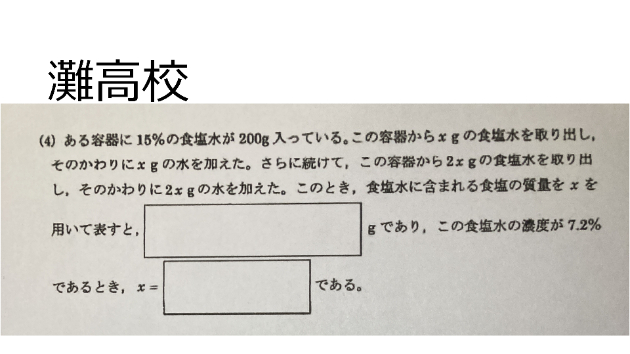 灘高校
(4) ある容器に 15%の食塩水が 200g 入っている。この容器から x g の食塩水を取り出し,
そのかわりに x g の水を加えた。さらに続けて, この容器から 2x g の食塩水を取り出
し, そのかわりに 2x g の水を加えた。このとき, 食塩水に含まれる食塩の質量を x を
用いて表すと, g であり, この食塩水の濃度が 7.2%
であるとき, x = である。